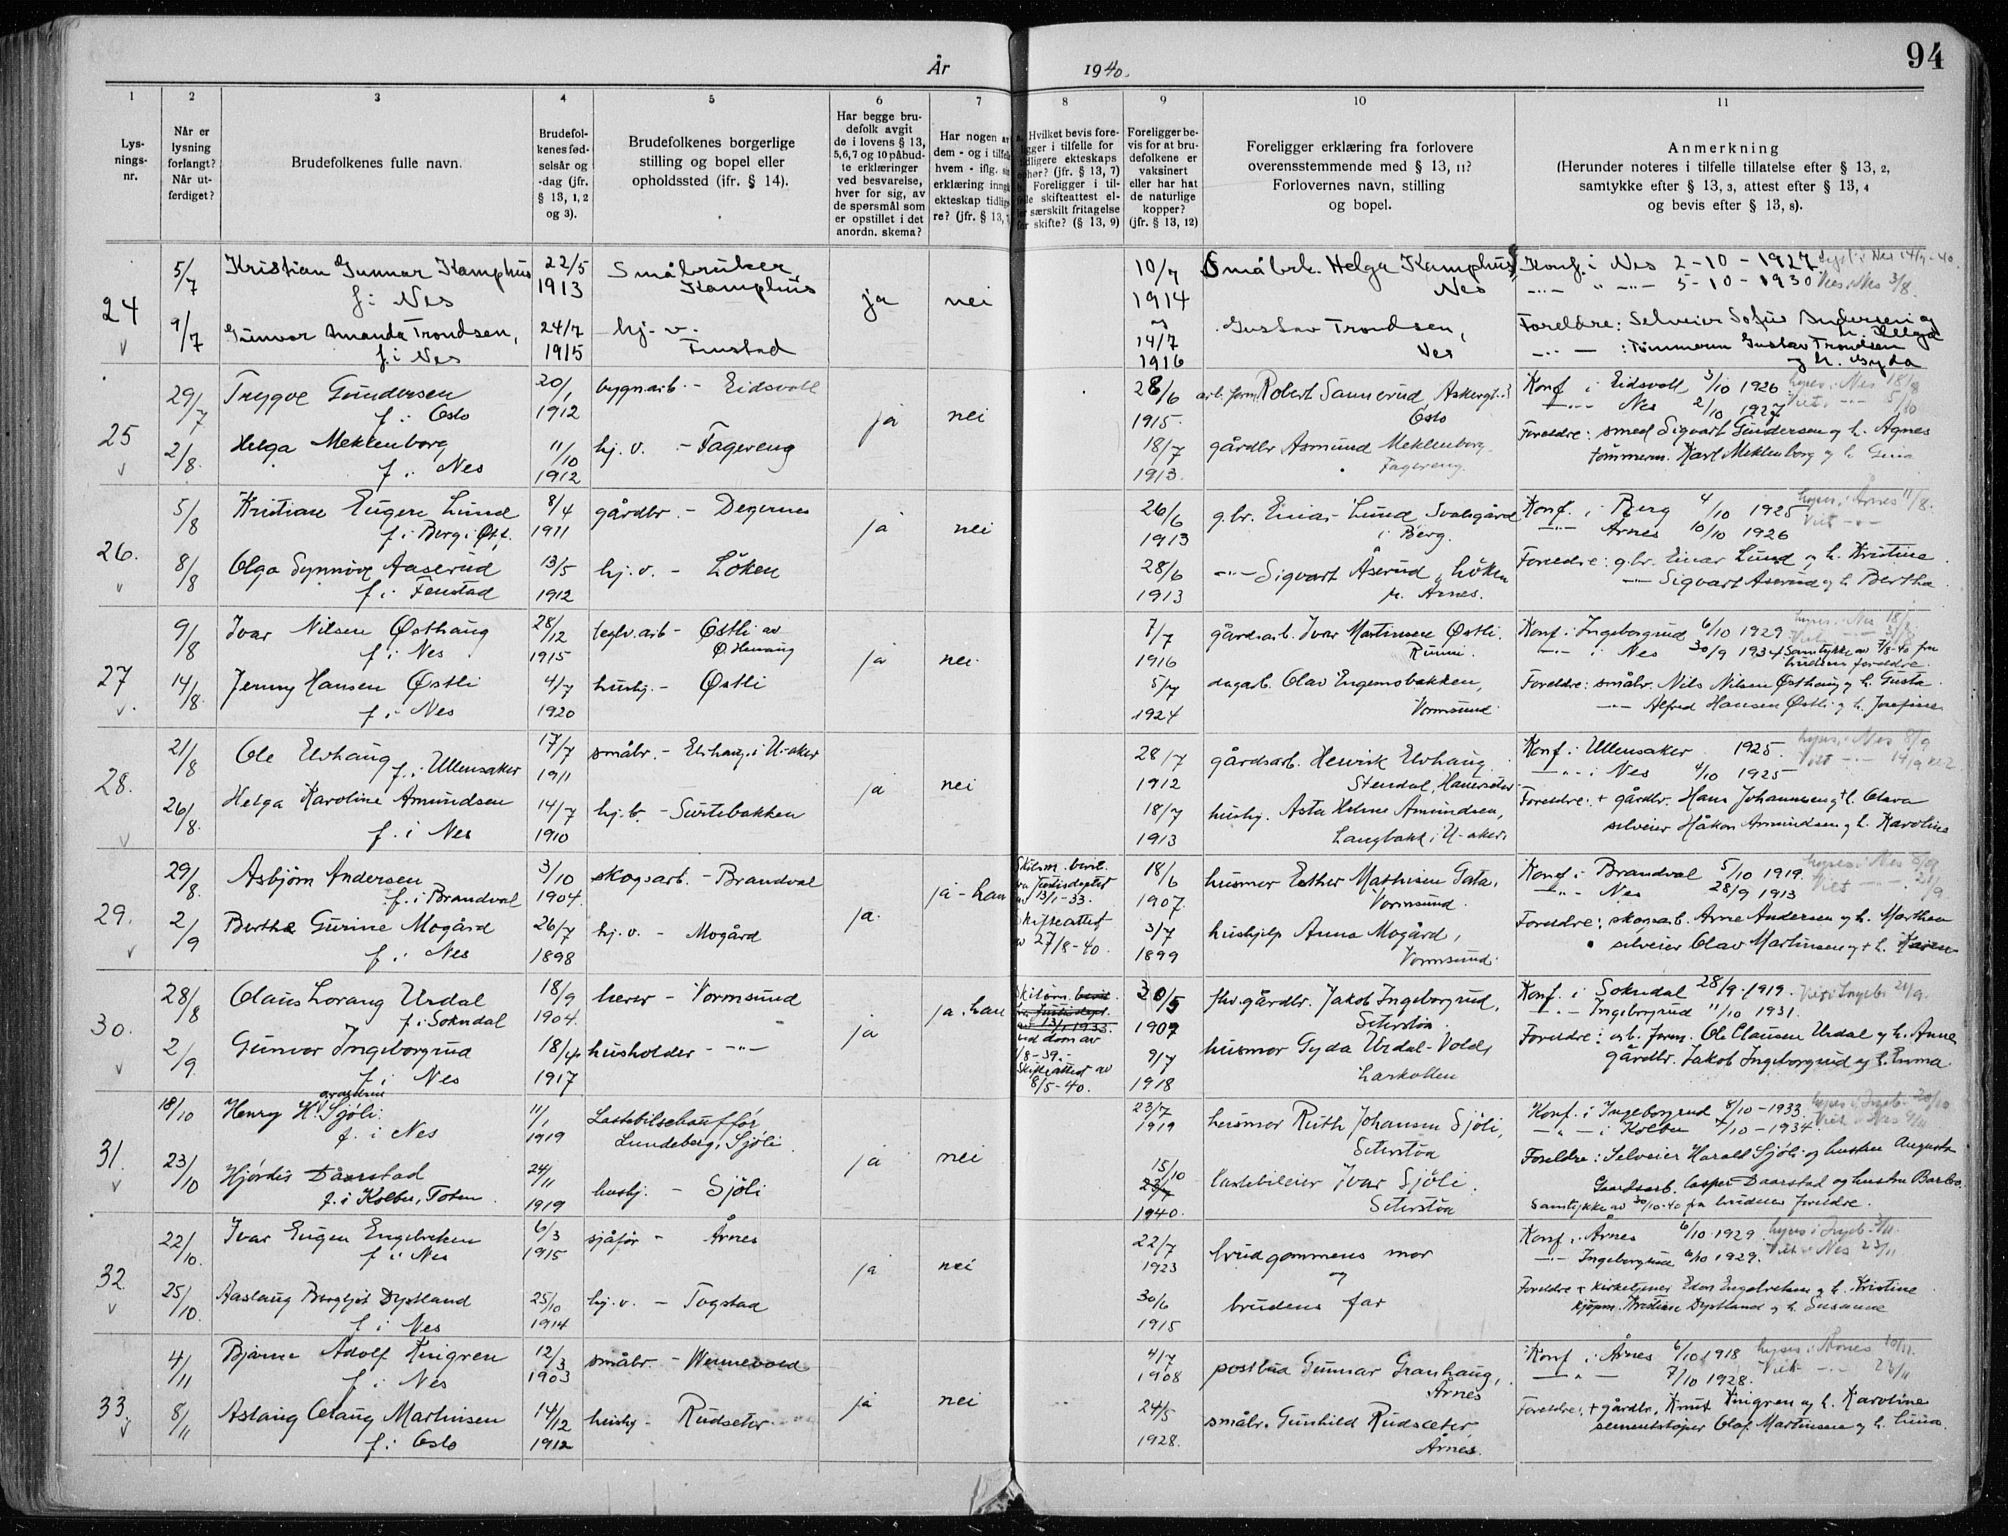 94
År 1940.
1 2 3 4 5 6 7 8 9 10 11
Lys-
nings-
nr.
Når er
lysning
forlangt?
Når ut-
ferdiget?
Brudefolkenes fulle navn.
Brudefol-
kenes fød-
selsår og
-dag (jfr.
§ 13, 1, 2
og 3).
Brudefolkenes borgerlige
stilling og bopel eller
opholdssted (ifr. § 14).
Har begge bru-
defolk avgit
de i lovens § 13,
5,6,7 og 10 påbud-
te erklæringer
ved besvarelse,
hver for sig, av
de spørsmål som
er opstillet i det
anordn. skema?
Har nogen a
dem - og i tilfel
hvem - iflg. si
erklæring inng
ekteskap tidlig
re? (jfr. § 13,
Hvilket bevis fore-
ligger i tilfelle for
tidligere ekteskaps
ophør? (jfr. § 13, 7)
Foreligger i til-
felle skifteattest el-
ler særskilt fritagelse
for skifte? (§ 13, 9)
Foreligger be-
vis for at bru-
defolkene er
vaksinert
eller har hat
de naturlige
kopper?
(jfr. § 13, 12)
Foreligger erklæring fra forlovere
overensstemmende med § 13, 11?
Forlovernes navn, stilling
og bopel.
Anmerkning
(Herunder noteres i tilfelle tillatelse efter § 13, 2,
samtykke efter § 13, 3, attest efter § 13, 4
og bevis efter § 13, 8).
24
5/7 Kristian Gunnar Kamphus 22/5 Småbruker, 10/7 Småbrk. Helga Kamphus, Konf. i Nes 2-10-1927
f. i Nes 1913 Kamphus ja nei 1914 Nes 5-10-1930 Viet i Nes 3/8.
9/7 Gunvor Amanda Trondsen, 24/7 hj. v. og Gustav Trondsen, Foreldre: Selveier Sofus Andersen og h. Helga
f. i Nes 1915 14/7 1916 Nes : Tømmerm Gustav Trondsen og h. Gyda
25
29/7 Trygve Gundersen 20/1 bygn.arb. - Eidsvoll 28/6 Robert Sannerud, Konf i Eidsvoll 3/10 1926
f. i Oslo 1912 ja nei 1915. Oslo Nes 2/10 1927
2/8. Helga Meklenborg 11/10 hj. v. - Fagereng 18/7 gårdbr Asmund Meklenborg Foreldre: smed Sigvart Gundersen og h. Agnes
f. i Nes 1912 1913. Fagereng. tømmerm. Karl Meklenborg og h.
26.
5/8 Kristian Eugen Lund 8/4 gårdbr. - Degernes 26/6 g.br. Einar Lund Konf. i Berg 4/10 1925
f. i Berg i Østf. 1911 ja nei 1913 i Berg. Årnes 10/10 1926
8/8 Olga Synnöve Aaserud 13/5 hj. v. - Löken 28/6 Sigvart Åserud, Löken Foreldre: g.br. Einar Lund og h. Kristine
f. i Fenstad 1912 1913 Årnes. Sigvart Aserud og h. Bertha
27
9/8 Ivar Nilsen Østhaug 28/12 teglv.arb - Østli 7/7 gårdsarb. Ivar Martinsen Østli. Konf i Ingeborgrud 6/10 1929
f. i Nes 1915 ja nei 1916 i Nes 30/9 1934 Samtykke av 7/8-40 fra
brudens foreldre.
14/8. Jenny Hansen Østli 4/7 hushj. - Østli 5/7 Olav Engemobakken, Foreldre: småbr. Nils Nilsen Østhaug og h. Gusta
f. i Nes 1920 1924 Vormsund Alfred Hansen Østli og h. Josefine
28.
21/8 Ole Elvhaug 17/7 småbr. - Elvhaug i U-aker 28/7 gårdsarb. Henrik Elvhaug Konf. i Ullensaker 1925.
f. i Ullensaker 1911 ja nei 1912 i Nes 4/10 1925
26/8. Helga Karoline Amundsen 14/7 hj. v. - Surtebakken 18/7 hushj. Asta Helene Amundsen, Foreldre: + gårdbr. Hans Johannesen og h. Olava
f. i Nes 1910 1913 selveier Håkon Amundsen og h. Karoline
29.
29/8. Asbjørn Andersen 3/10 skogsarb. - Brandval 18/6 husmor Esther Mathisen Konf i Brandval 5/10 1919.
f. i Brandval 1904. ja. ja - han 1907. Vormsund. Nes 28/9 1913
13/1-33.
Skifteattest
av 27/8-40.
2/9 Berthe Gurine Mogård 26/7 hj. v. - Mogård 3/7 hushjelp Anna Mogård, Foreldre: skogsarb. Arne Andersen og h. Marthea
f. i Nes 1898 1899 Vormsund. selveier Olav Martinsen og + h. Karen
30.
28/8 Claus Lorang Urdal 18/9 lærer - Vormsund 20/5 fhv. gårdbr. Jakob Ingeborgrud, Konf. i Sokndal 28/9.1919.
f. i Sokndal 1904. ja ja. han 1907 Seterstøa Ingeborgrud 11/10 1931.
ved dom av
1/8-39.-
Skifteattest av
8/5-40.
2/9. Gunvor Ingeborgrud 18/4 husholder 9/7 husmor Gyda Urdal-Vold, Foreldre: arb. form. Ole Clausen Urdal og h. Anne
f. i Nes 1917 1918 Larkollen gårdbr. Jakob Ingeborgrud og h. Emma
31.
18/10 Henry H. Sjöli. 11/1 Lastebilchauffør 23/7 husmor Ruth Johansen Sjöli, Konf. i Ingeborgrud 8/10-1933.
f. i Nes 1919 Lundeberg, Sjöli. ja nei 1919 Seterstöa i Kolbu 7/10-1934.
23/10 Hjørdis Daarstad 24/11 hushj. - Sjöli 15/10 lastebileier Ivar Sjöli. Foreldre: Selveier Harald Sjöli og hustru Augusta
f. i Kolbu, Toten. 1919 1940. Seterstöa Gaardsarb. Casper Daarstad og hustru Barbo.
Samtykke av 30/10-40 fra brudens foreldre.
32
22/10. Ivar Eugen Engebretsen 6/3 sjåfør - Årnes 22/7 brudgommens mor Konf. i Årnes 6/10 1929.
f. i Nes 1915 ja nei 1923 og Ingeborgrud 6/10 1929.
25/10. Aaslaug Bergljot Dystland 25/10 hj. v. - Togstad 30/6 brudens far Foreldre + kirketjener Edon Engebretsen og h. Kristine
f. i Nes 1914 1915 kjøpm. Kristian Dystland og h. Susanne
33.
4/11 Bjarne Adolf Knigren 12/3 småbr. - Wennevold 4/7 postbud Gunnar Granhaug, Konf i Årnes 6/10 1918
f. i Nes 1903 ja nei 1908 Årnes 7/10 1928.
8/11 Aslaug Olaug Martinsen 14/12 hushj. - Rudseter 24/5 småbr. Gunhild Rudsæter, Foreldre: + gårdbr. Knut Knigren og h. Karoline
f. i Oslo 1912 1928. Årnes. sementstøper Olof Martinsen og h.